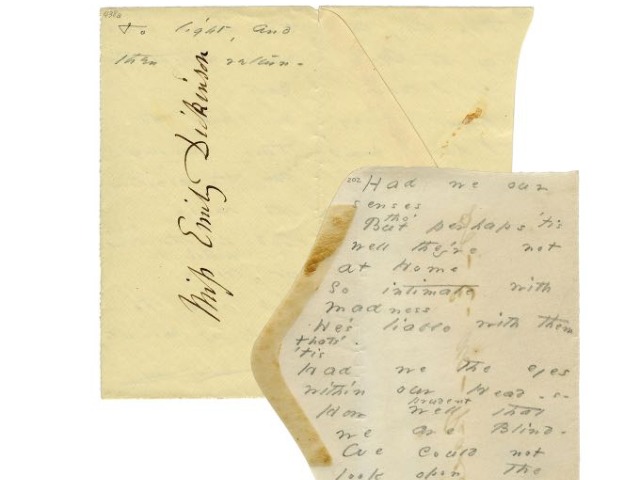 To light, and
then return -
Miss Emily Dickinson
202 Had we our
senses
tho'
But perhaps 'tis
well they're not
at Home
So intimate with
Madness
He's liable with them
that's
'tis
Had we the eyes
within our Head - s -
prudent
How well that
we are Blind -
We could not
look opon the